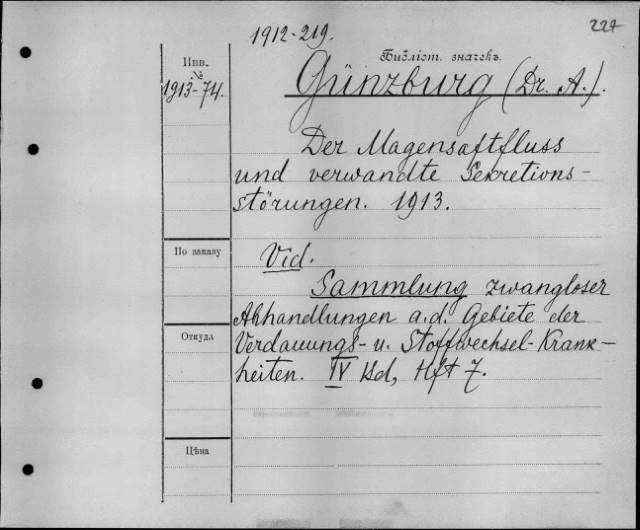 1912-219.
227
Инв.
№
1913-74.
Библіот. значекъ.
Günzburg (Dr. A.).
Der Magensaftfluss
und verwandte Sekretions-
störungen. 1913.
По заказу
Vid.
Sammlung zwangloser
Abhandlungen a.d. Gebiete der
Откуда
Verdauungs- u. Stoffwechsel-Krank-
heiten. IV Bd, Hft 7.
Цѣна